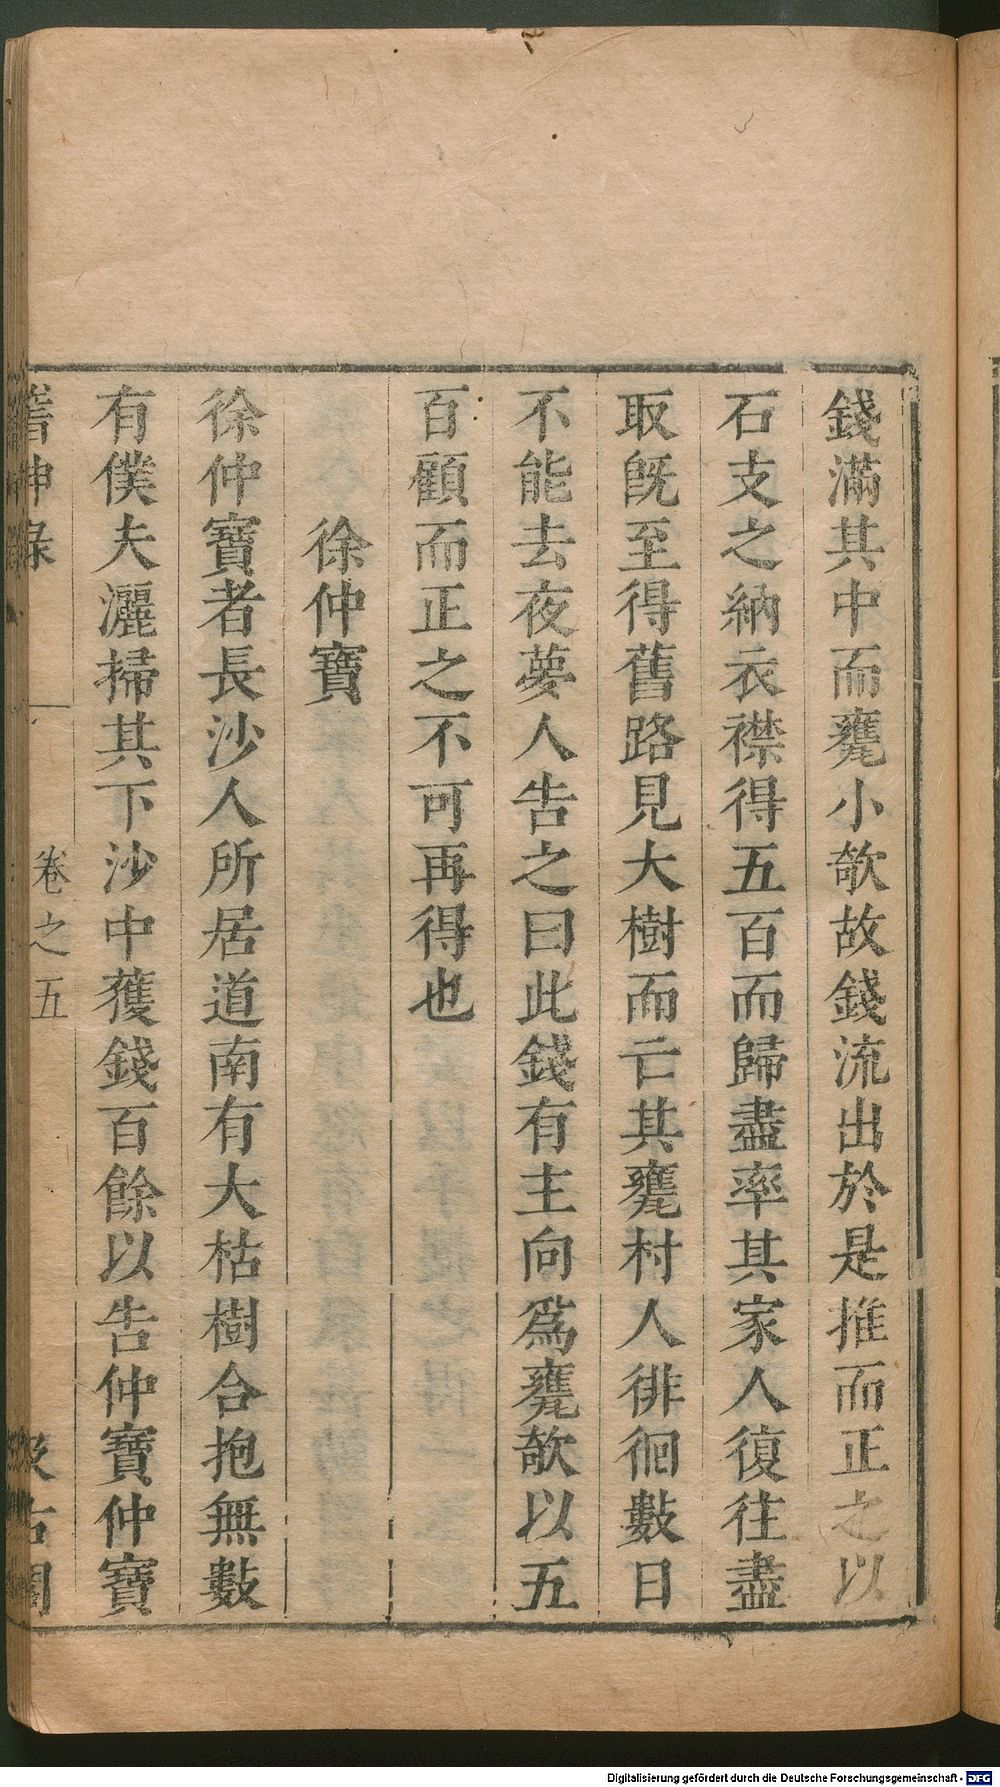 錢滿其中而甕小欹故錢流出於是推而正之以
石支之納衣襟得五百而歸盡率其家人復往盡
取旣至得舊路見大樹而亡其甕村人徘徊數日
不能去夜夢人告之曰此錢有主向爲甕欹以五
百顧而正之不可再得也
徐仲寶
徐仲寶者長沙人所居道南有大枯樹合抱無數
有僕夫灑掃其下沙中獲錢百餘以告仲寶仲寶
稽神錄
卷之五
汲古閣
Digitalisierung gefördert durch die Deutsche Forschungsgemeinschaft - DFG